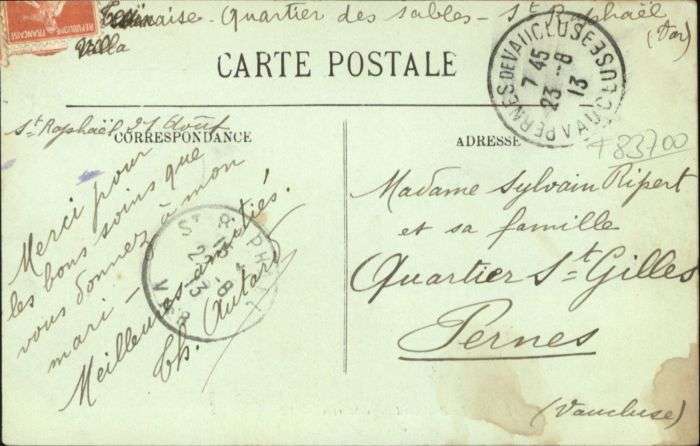 Villa Tessinaise - Quartier des Sables - St Raphaël
(Var)
REPUBLIQUE FRANÇAISE
CARTE POSTALE
PERNES DE VAUCLUSE
7 45
23 -8
13
VAUCLUSE
St Raphaël 21 Août
CORRESPONDANCE
Merci pour
les bons soins que
vous donnez à mon
mari -
Meilleures amitiés.
Th. Autard
ST RAPHAEL
VAR
ADRESSE
+83700
Madame Sylvain Ripert
et sa famille
Quartier St Gilles
Pernes
(Vaucluse)